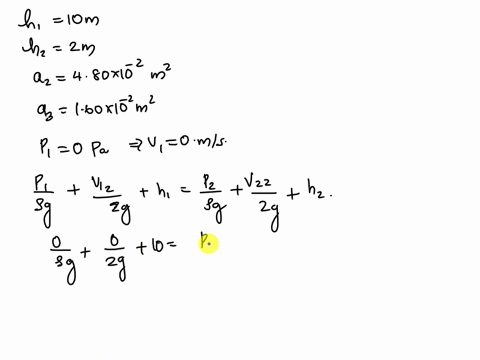 h₁ = 10m
h₂ = 2m
a₂ = 4.80×10⁻² m²
a₃ = 1.60×10⁻² m²
P₁ = 0 Pa ⇒ V₁ = 0 m/s.
P₁/ρg + V₁₂/2g + h₁ = P₂/ρg + V₂₂/2g + h₂.
0/ρg + 0/2g + 10 = P